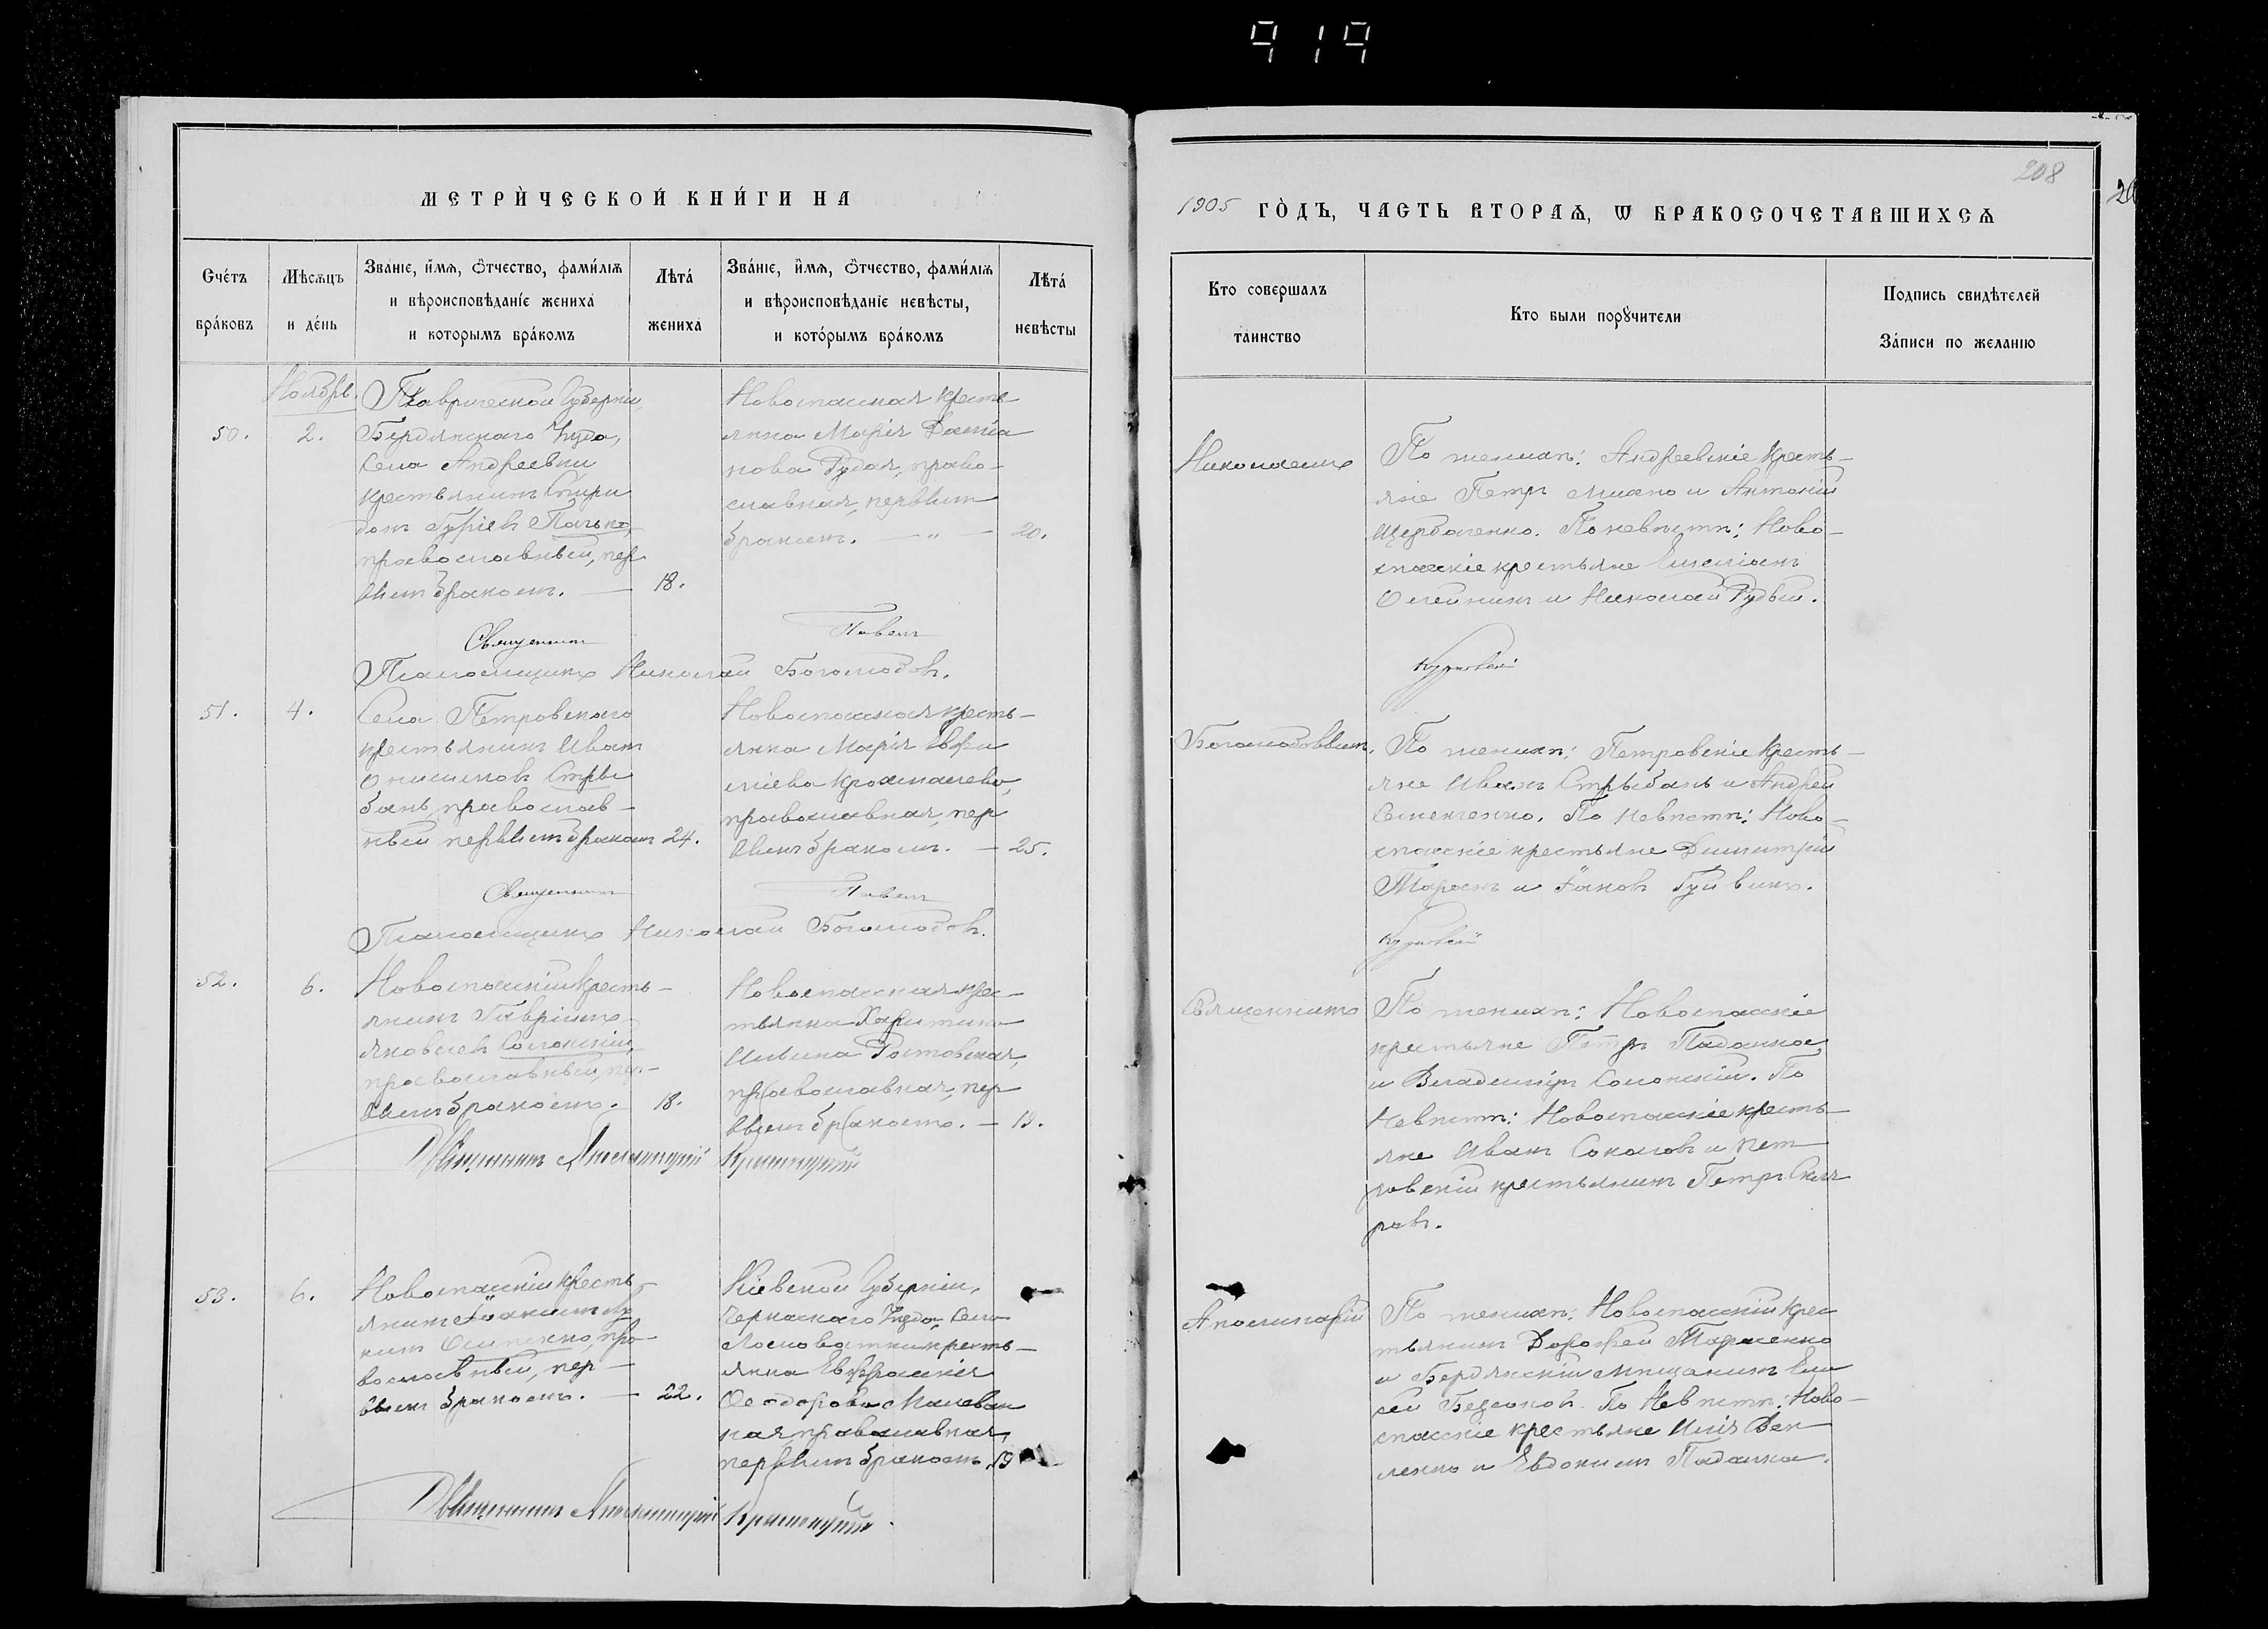 919
208
МЕТРИ́ЧЕСКОЙ КНИ́ГИ НА
1905 ГО́ДЪ, ЧАСТЬ ВТОРАѦ, Ѡ БРАКОСОЧЕТАВШИХСѦ
Сче́тъ
бра́ковъ
Мѣсѧцъ
и де́нь
Зва́нїе, и҆мѧ, о҆тчество, фами́лїѧ
и вѣроисповѣда́нїе жениха̀
и которымъ бра́комъ
Лѣта́
жениха̀
Зва́нїе, и҆мѧ, о҆тчество, фами́лїѧ
и вѣроисповѣда́нїе невѣсты,
и кото́рымъ бра́комъ
Лѣта́
невѣсты
Кто совершалъ
таинство
Кто были порꙋчители
Подпись свидѣтелей
За́писи по желанїю
Ноябрь.
50.
2.
Таврической Губерніи,
Бердянскаго Уѣзда,
Села Андреевки
крестьянинъ Спири
донъ Гуріевъ
православный, пер
вымъ бракомъ. — 18.
Новоспасская кресть-
янка Марія Даміа
нова Рудая, право-
славная, первымъ
бракомъ. — " — 20.
Николаемъ
По женихѣ: Андреевскіе кресть-
яне Петръ Михно и Антоній
Щербаченко. По невѣстѣ: Ново-
спасскіе крестьяне Емеліанъ
Олейникъ и Николай Рудый.
Священникъ Павелъ
Псаломщикъ Николай Богомоловъ.
51.
4.
Села Петровскаго
крестьянинъ Иванъ
Онисимовъ Стры
бань, православ-
ный первымъ бракомъ 24.
Новоспасская кресть-
янка Марія Евфи
міева
православная, пер
вымъ бракомъ. — 25.
По женихѣ: Петровскіе кресть-
яне Иванъ Стрыбань и Андрей
Семенченко. По невѣстѣ: Ново-
спасскіе крестьяне Димитрій
Таранъ и Іаковъ
Священникъ Павелъ
Псаломщикъ Николай Богомоловъ.
52.
6.
Новоспасскій кресть-
янинъ Гавріилъ
Яковлевъ Солонскій,
православный, пер-
вымъ бракомъ. — 18.
Новоспасская крес-
тьянка Харитина
Ильина Ростовская,
православная, пер
вымъ бракомъ. — 19.
Священникъ
По женихѣ: Новоспасскіе
крестьяне Петръ Падалка
и Владиміръ Солонскій. По
Невѣстѣ: Новоспасскіе кресть-
яне Иванъ Соколовъ и Пет
ровскій крестьянинъ Петръ
Священникъ
53.
6.
Новоспасскій кресть-
янинъ Іоакимъ Лу
кинъ Осипенко, пра-
вославный, пер-
вымъ бракомъ. — 22.
Кіевской Губерніи,
Черкаскаго Уѣзда, Села
Лосковатки кресть-
янка Евфрасинія
Ѳеодорова Малеван
ная православная,
первымъ бракомъ. 19
Аполинарій
По женихѣ: Новоспасскій крес
тьянинъ Дорофей Тараненко
и Бердянскій мѣщанинъ Ели
сей По Невѣстѣ: Ново-
спасскіе крестьяне Илія
и Евдокимъ Падалка.
Священникъ